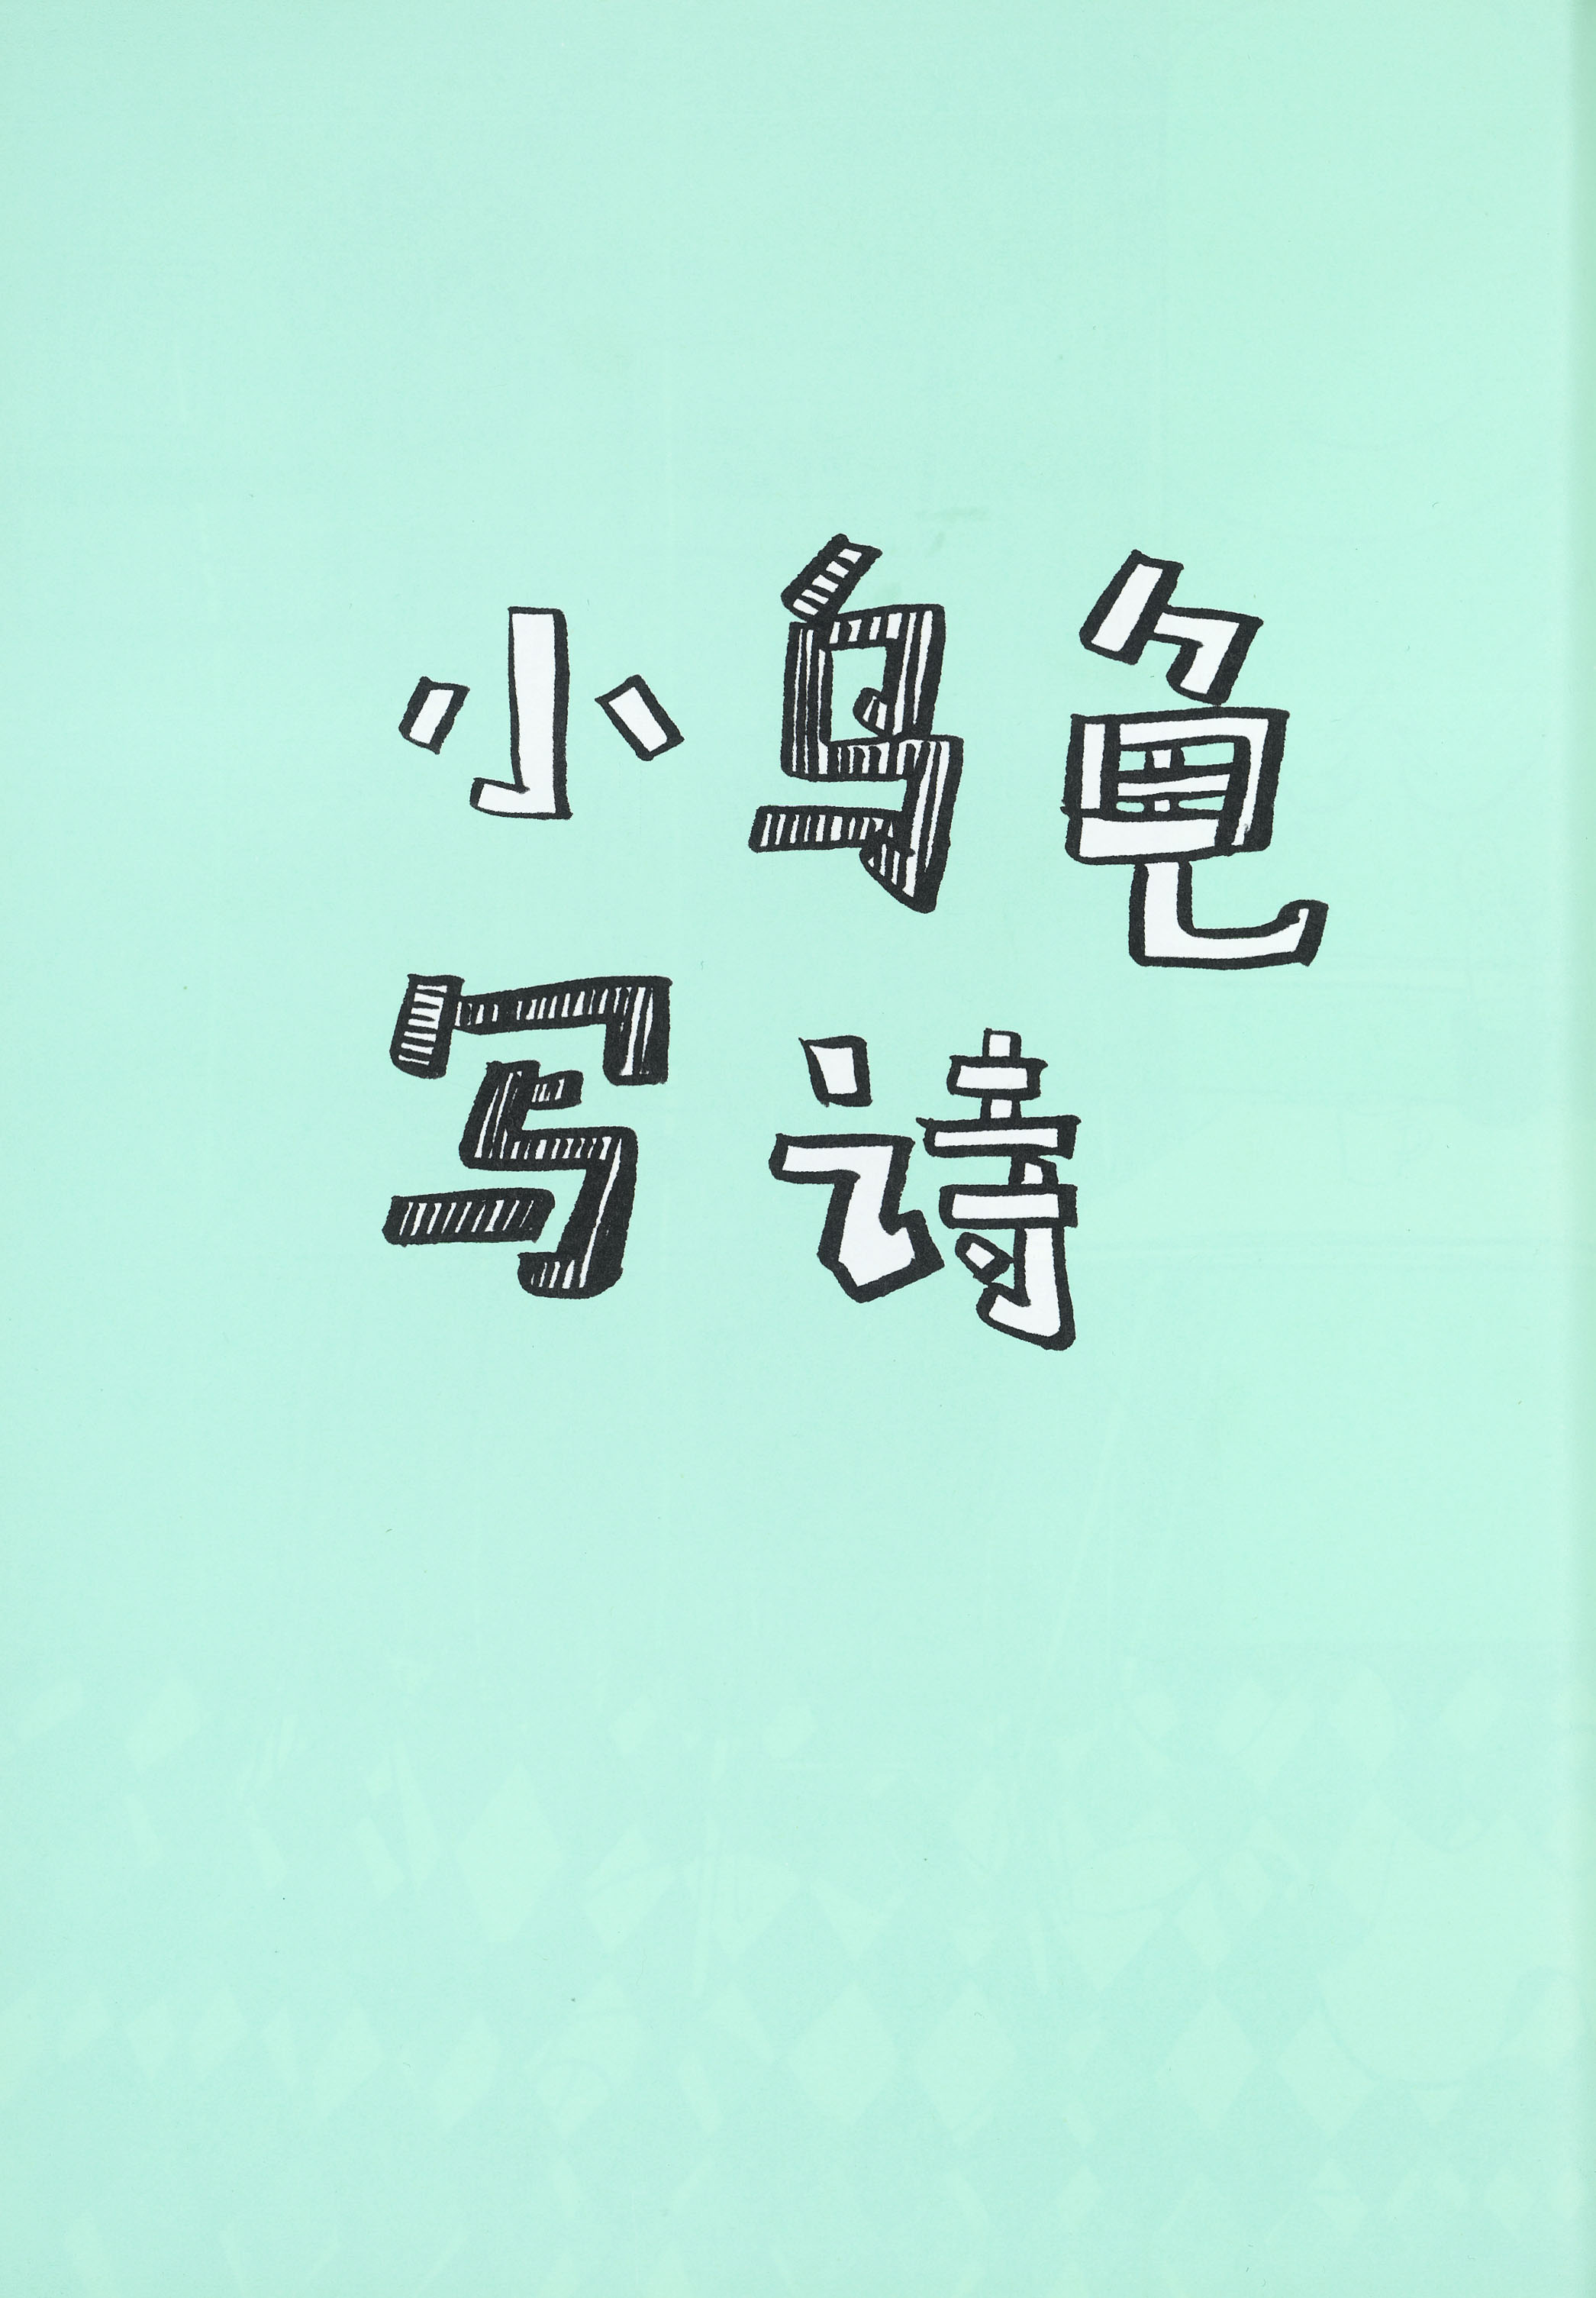 小乌龟
写诗